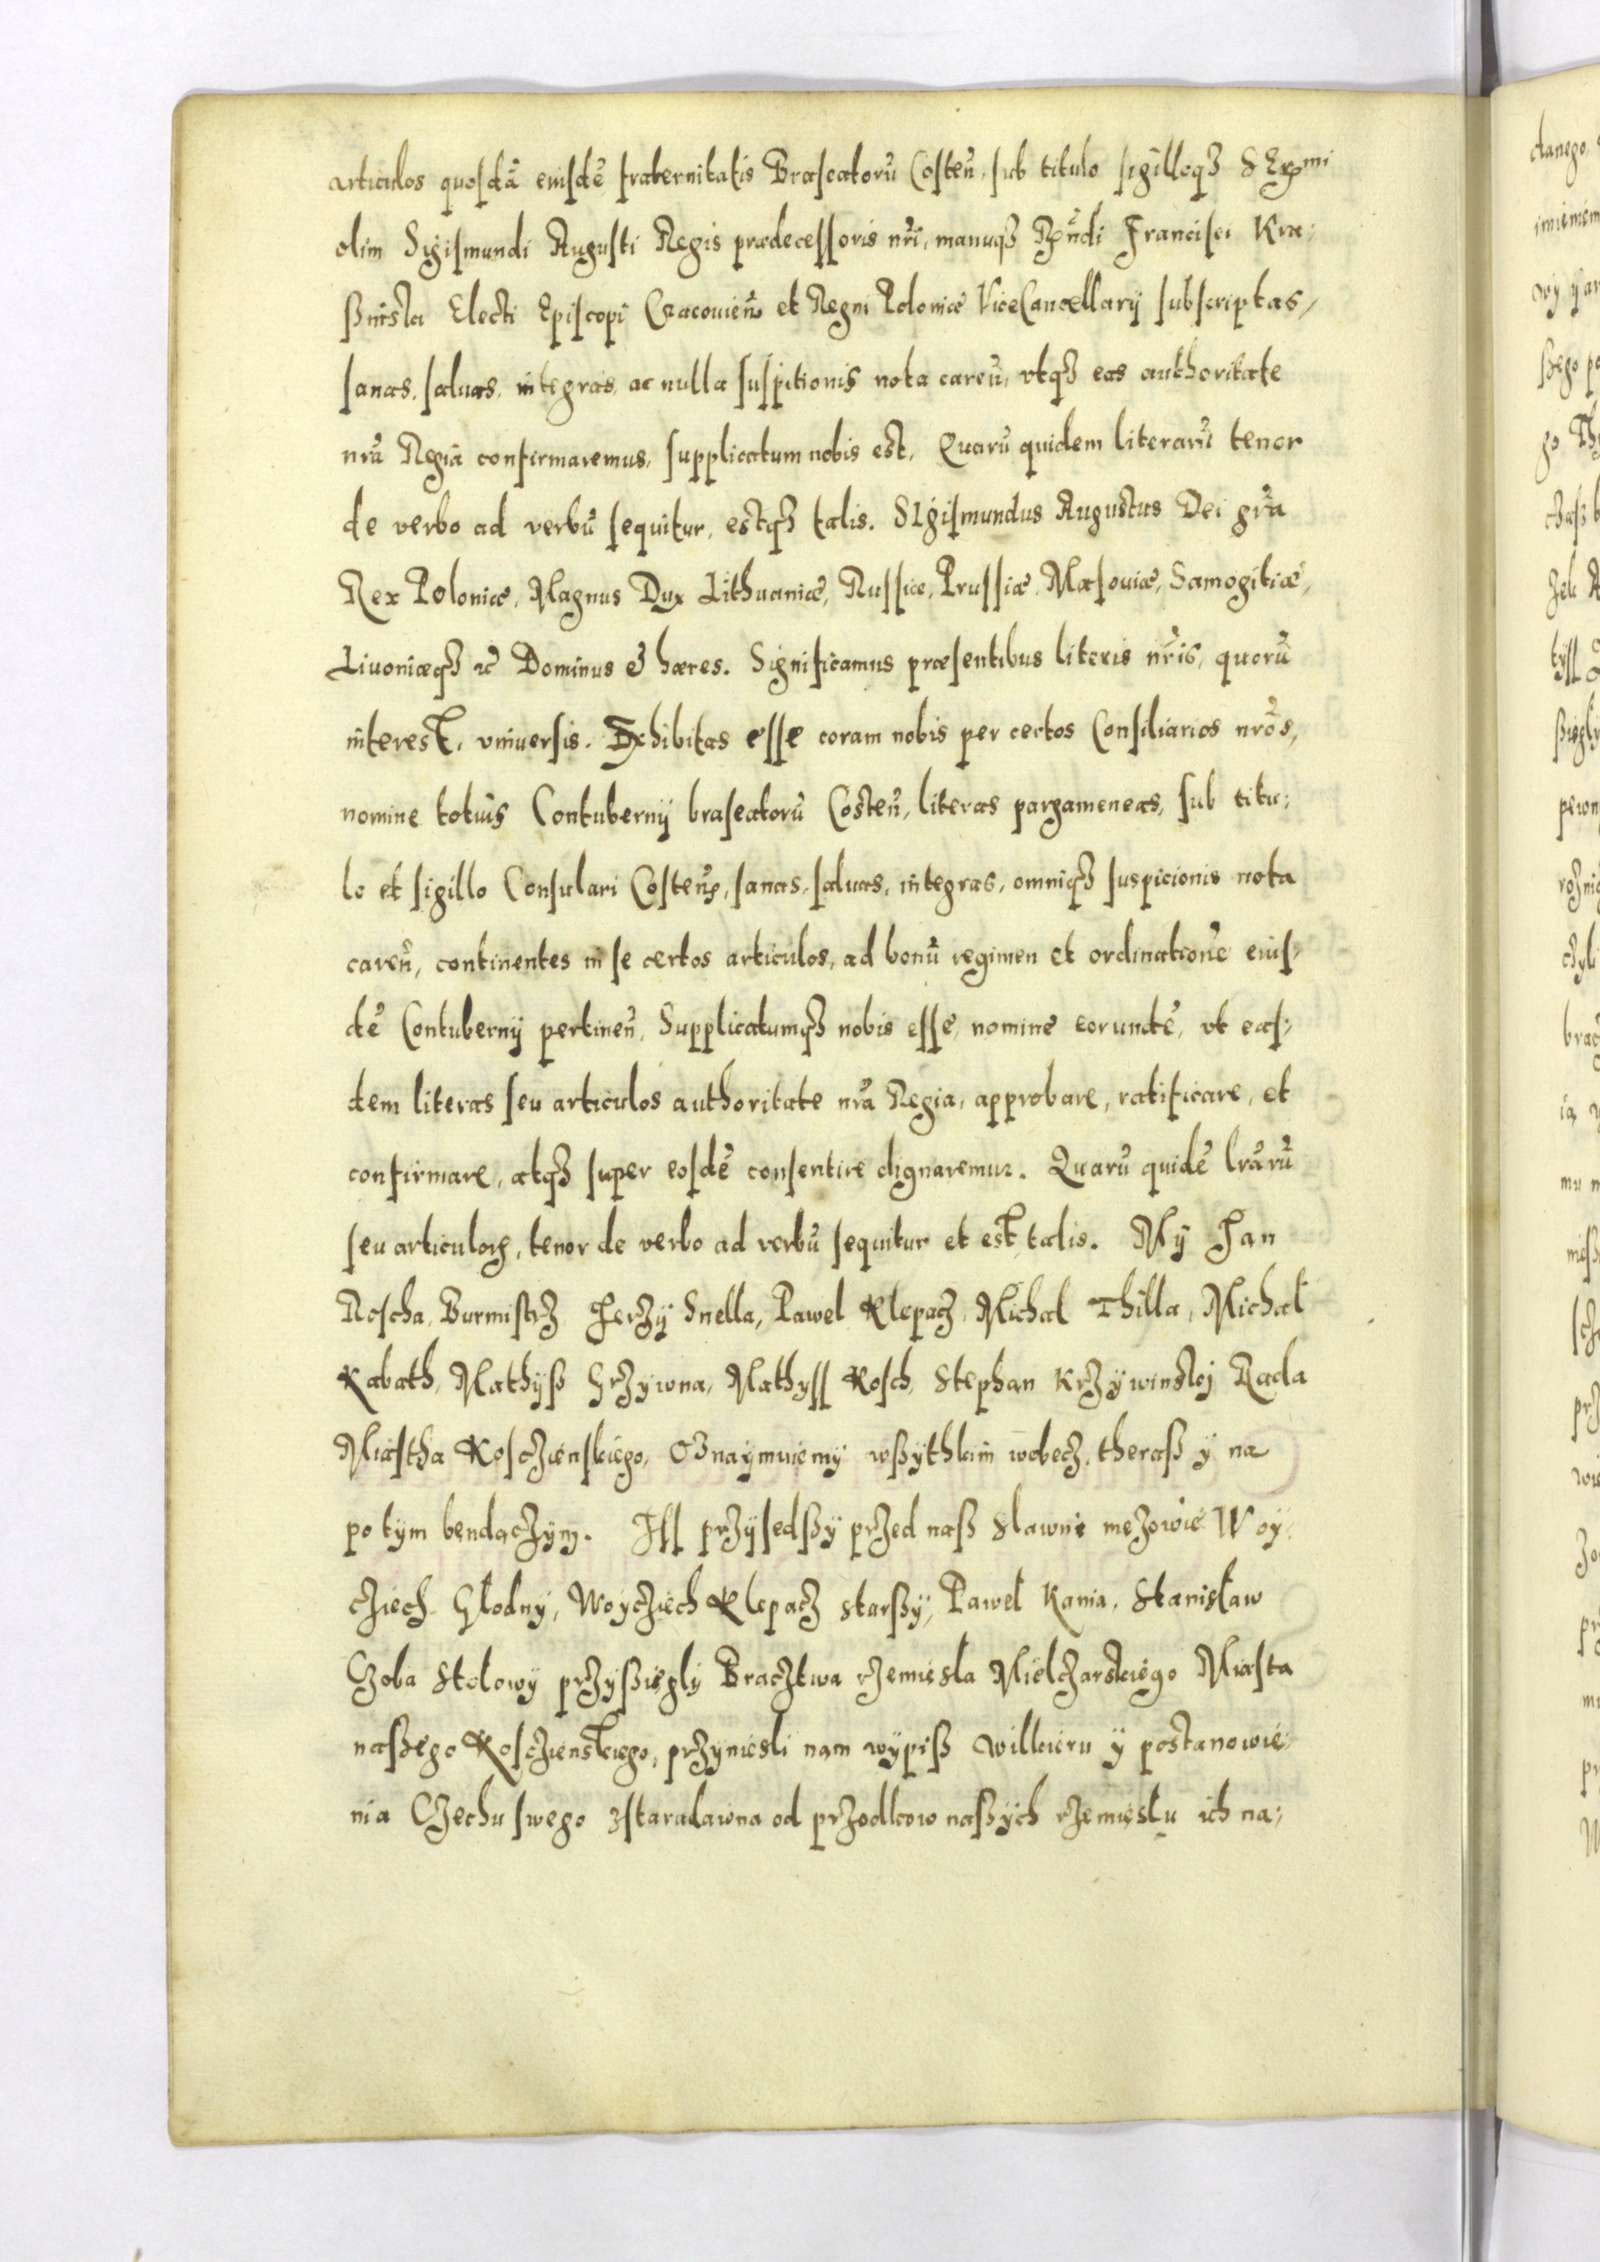 articulos quosdã eiusdẽ fraternitatis Braseatorũ Costeñ, sub titulo sigilloqꝫ SExᵐⁱ
olim Sigismundi Augusti Regis prædecessoris nr̃i, manuqꝫ Rñdi Francisci Kra:
ßinski Electi Episcopi Cracovieñ et Regni Poloniæ ViceCancellarij subscriptas,
sanas, saluas, integras, ac nulla suspitionis nota careñ, vtqꝫ eas authoritate
nrã Regiâ confirmaremus, supplicatum nobis est. Quarũ quidem literarũ tenor
de verbo ad verbũ sequitur, estqꝫ talis. SIgismundus Augustus Dei gr̃a
Rex Poloniæ, Magnus Dux Lithuaniæ, Russiæ, Prussiæ, Masouiæ, Samogitiæ,
Liuoniæqꝫ ꝛc̃ Dominus & hæres. Significamus præsentibus literis nr̃is, quorũ
interest, vniuersis. Exhibitas esse coram nobis per certos Consiliarios nrõs,
nomine totius Contubernij braseatorũ Costeñ, literas pargameneas, sub titu:
lo et sigillo Consulari Costeñ, sanas, saluas, integras, omniqꝫ suspicionis nota
careñ, continentes in se certos articulos, ad bonũ regimen et ordinationẽ eius,
dẽ Contubernij pertineñ, Supplicatumqꝫ nobis esse, nomine eorundẽ, vt eas:
dem literas seu articulos authoritate nrã Regia, approbare, ratificare, et
confirmare, atqꝫ super eosdẽ consentire dignaremur. Quarũ quidẽ lrãrũ
seu articuloꝝ, tenor de verbo ad verbũ sequitur et est talis. Mÿ Jan
Roscha, Burmistrz Jerzÿ Snella, Pawel Klepacz, Michal Thilla, Michał
Kabath, Mathÿß Grzÿwna, Mathyss Kosch, Stephan Krzÿwinskj Rada
Miastha Kosczienskiego, Oznaÿmuiemÿ wßÿthkim wobecz, theraß ÿ na
potÿm bendaczÿm. Jss przÿsedßÿ przed naß Slawni mezowie Woÿ:
cziech Głodnÿ, Woÿcziech Klepacz starßÿ, Paweł Kania, Stanisław
Czoba Stolowÿ przÿßięglÿ Bracztwa rzemiesla Mielczarskiego Miasta
naßego Kosczienskiego, przÿniesli nam wÿpiß Willkieru ÿ postanowie:
nia Czechu swego zstaradawna od przodkow naßÿch rzemięsłu ich na: